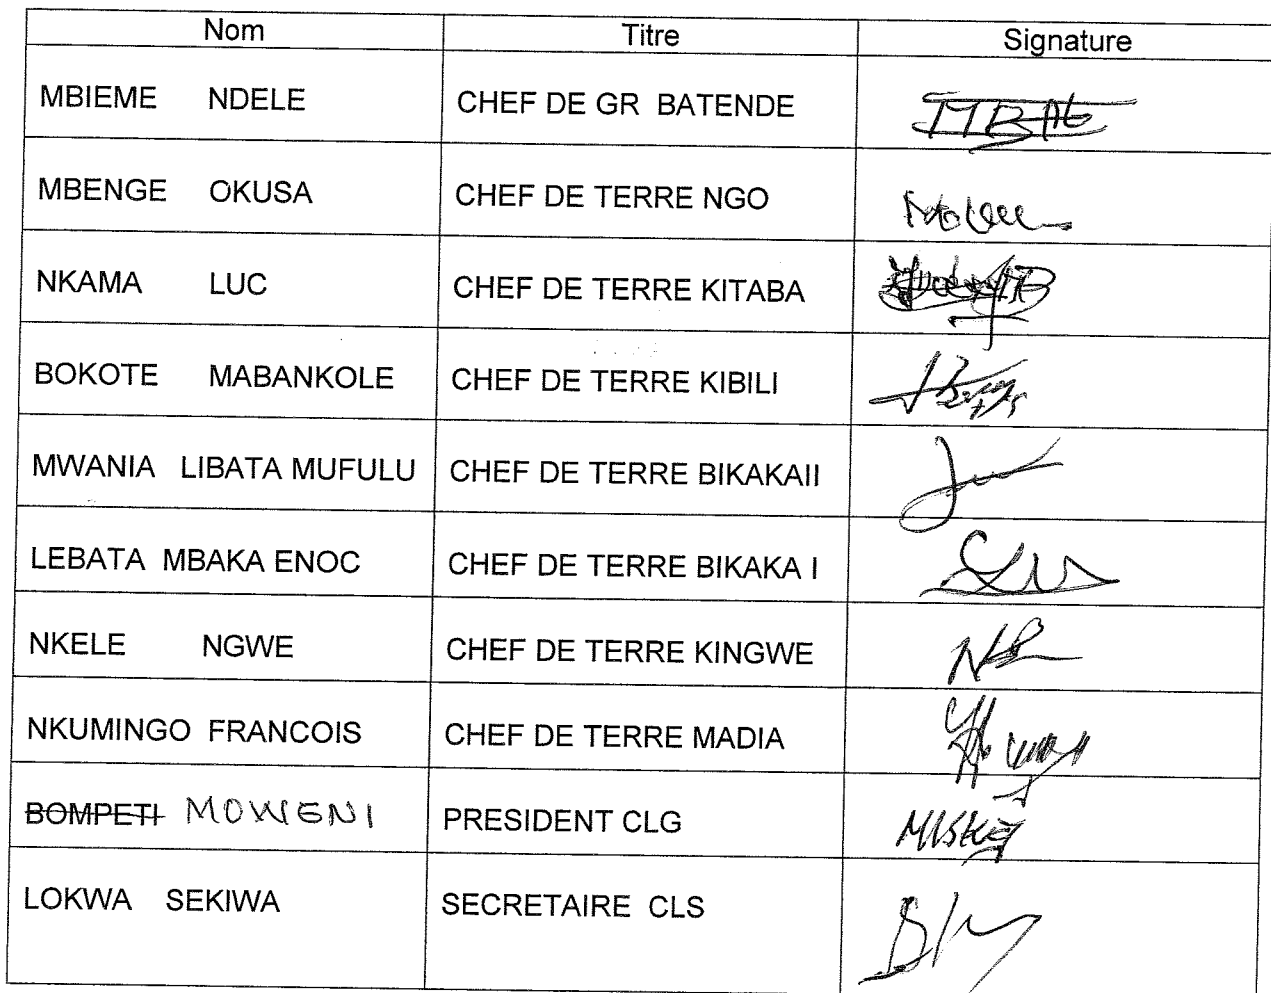 Nom Titre Signature
MBIEME NDELE CHEF DE GR BATENDE
MBENGE OKUSA CHEF DE TERRE NGO
NKAMA LUC CHEF DE TERRE KITABA
BOKOTE MABANKOLE CHEF DE TERRE KIBILI
MWANIA LIBATA MUFULU CHEF DE TERRE BIKAKAII
LEBATA MBAKA ENOC CHEF DE TERRE BIKAKA I
NKELE NGWE CHEF DE TERRE KINGWE
NKUMINGO FRANCOIS CHEF DE TERRE MADIA
BOMPETI MOWENI PRESIDENT CLG
LOKWA SEKIWA SECRETAIRE CLS